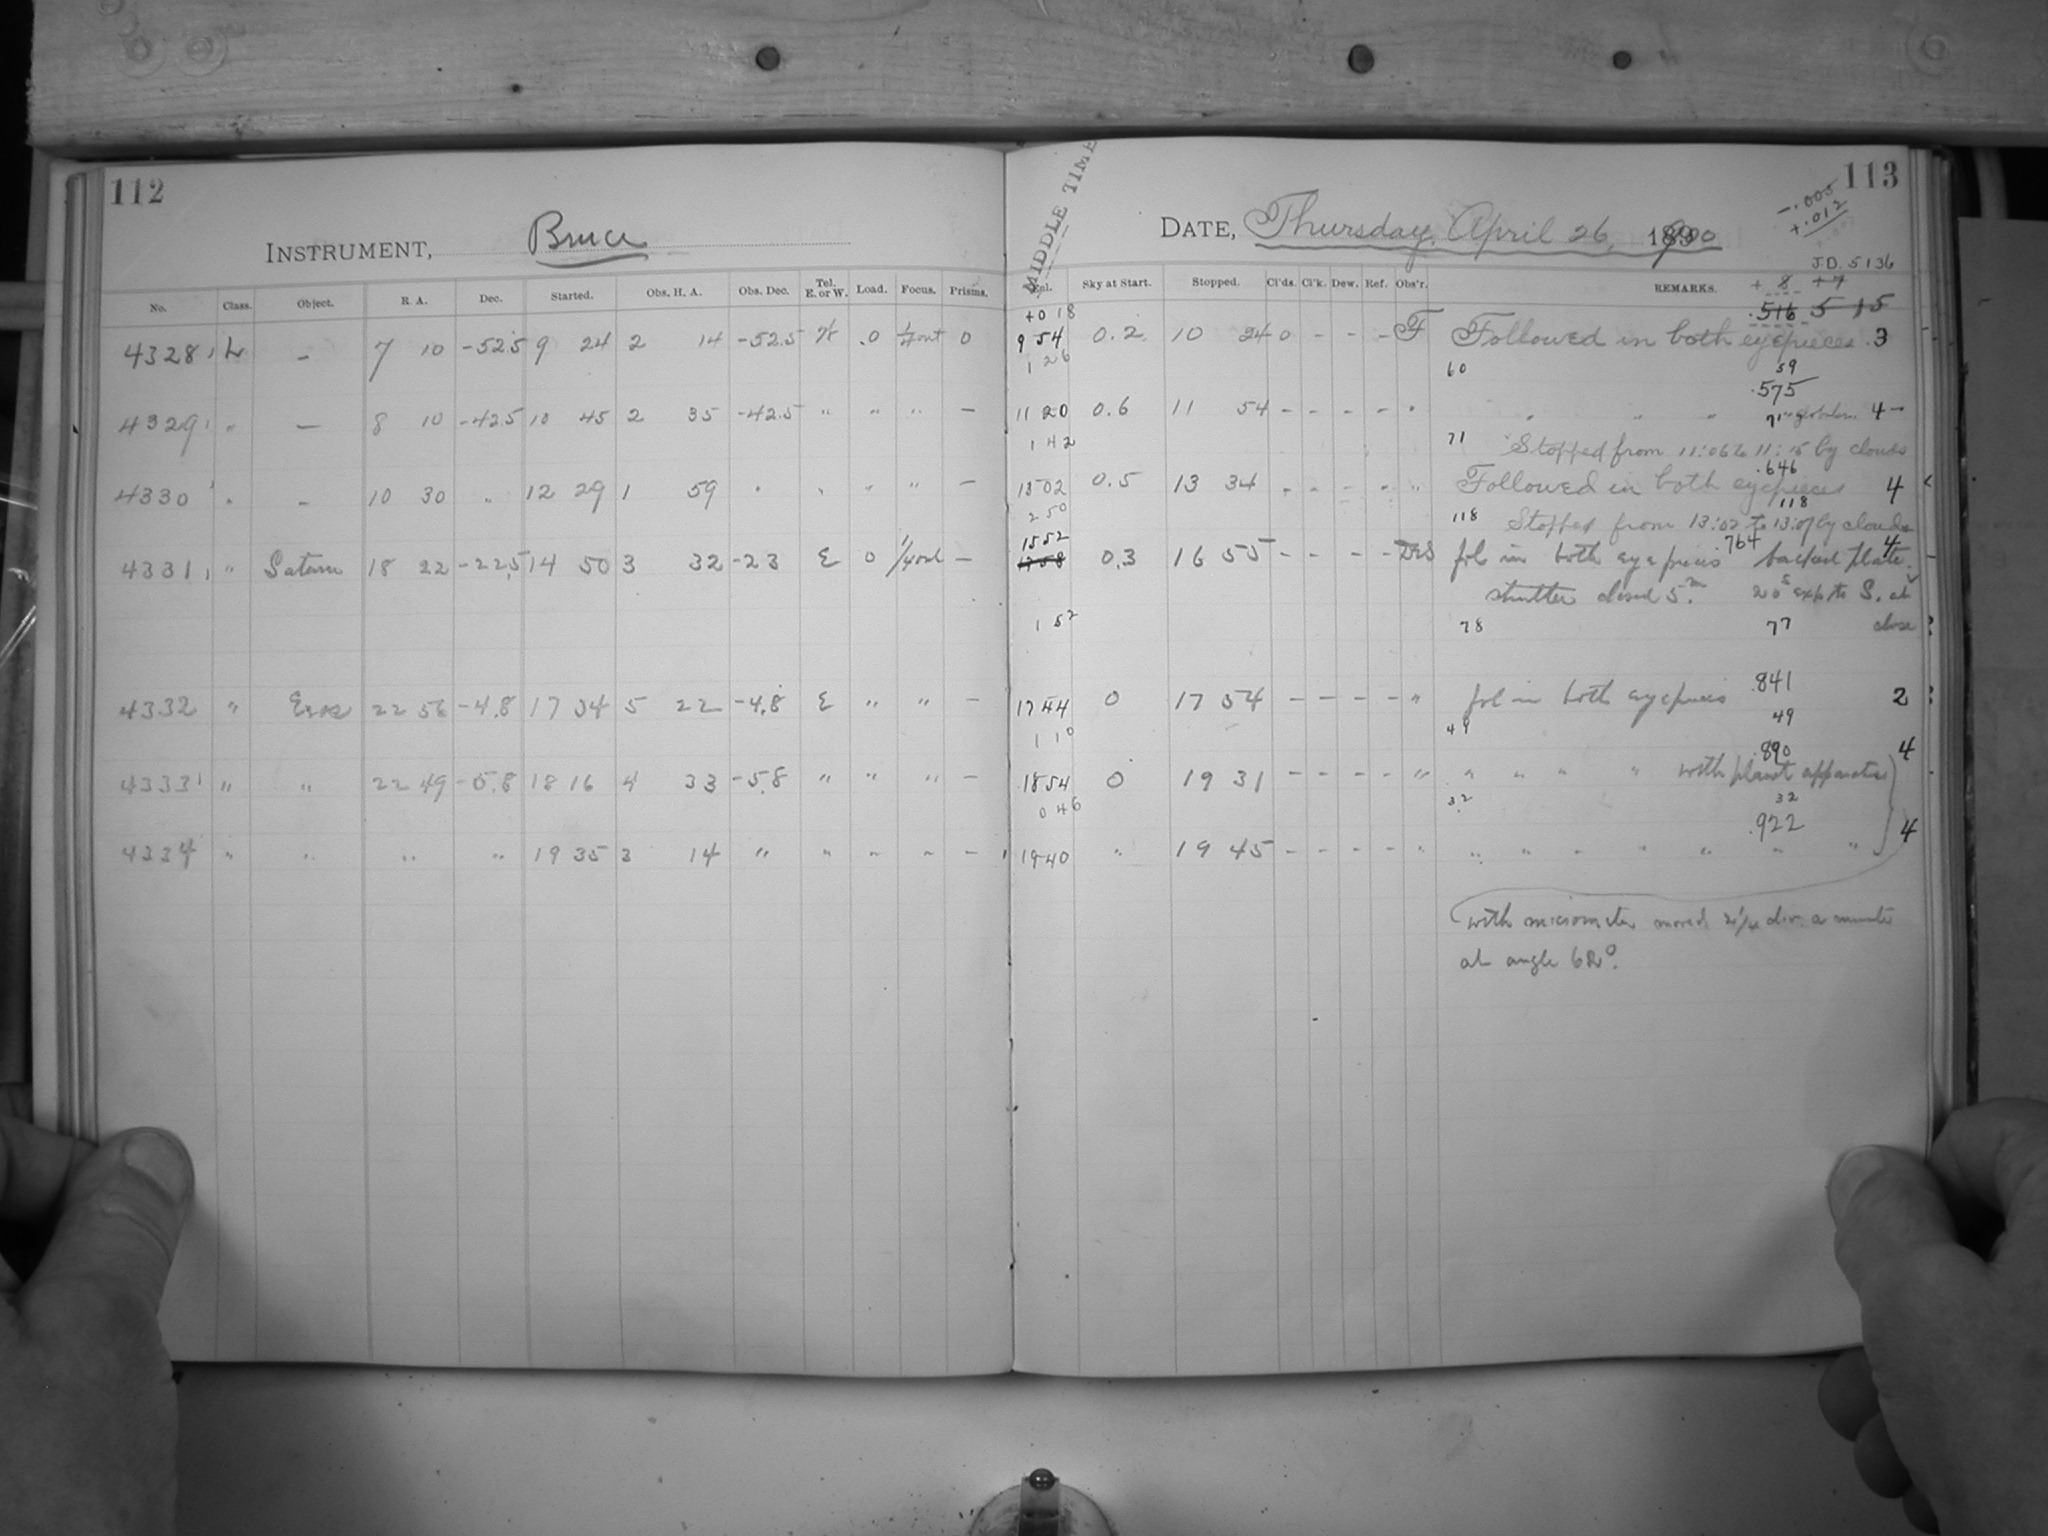 112
INSTRUMENT, Bruce
No. Class. Object. R. A. Dec. Started. Obs. H. A. Obs. Dec. Tel. E. or W. Load. Focus. Prisms.
4328 L — 7 10 -52.5 9 24 2 14 -52.5 W .0 0
4329 " — 8 10 -42.5 10 45 2 35 -42.5 " " " —
4330 " — 10 30 " 12 29 1 59 " " " " —
4331 " Saturn 18 22 -22.5 14 50 3 32 -23 E 0 —
4332 " Eros 22 56 -4.8 17 34 5 22 -4.8 E " " —
4333 " " 22 49 -5.8 18 16 4 33 -5.8 " " " —
4334 " " " " 19 35 3 14 " " " " —
113
MIDDLE TIME
-.005
+.012
DATE, Thursday, April 26, 1900
J.D. 5136
+ 8 +7
Sky at Start. Stopped. Cl'ds. Cl'k. Dew. Ref. Obs'r. REMARKS.
+0 18 .516 5 15
9 54 0.2 10 24 0 - - - F Followed in both eyepieces 3
1 26 60 59
.575
11 20 0.6 11 54 - - - - " " " " 4 -
1 42 71 Stopped from 11:06 to 11:15 by clouds
.646
13 02 0.5 13 34 - - - - " Followed in both eyepieces 4
2 50 118 118 Stopped from 13:02 to 13:07 by clouds
15 52 .764 4
0.3 16 55 - - - - DeS fol in both eyepieces backed plate
shutter closed 5m. 20s exp. to S. at
1 52 78 77 close
17 44 0 17 54 - - - - " fol in both eyepieces .841 2
1 10 49 49
.890 4
18 54 0 19 31 - - - - " " " " " with planet apparatus
0 46 32 32
.922 4
19 40 " 19 45 - - - - " " " " " " " "
with micrometer moved 2 1/4 div. a minute
at angle 62°.